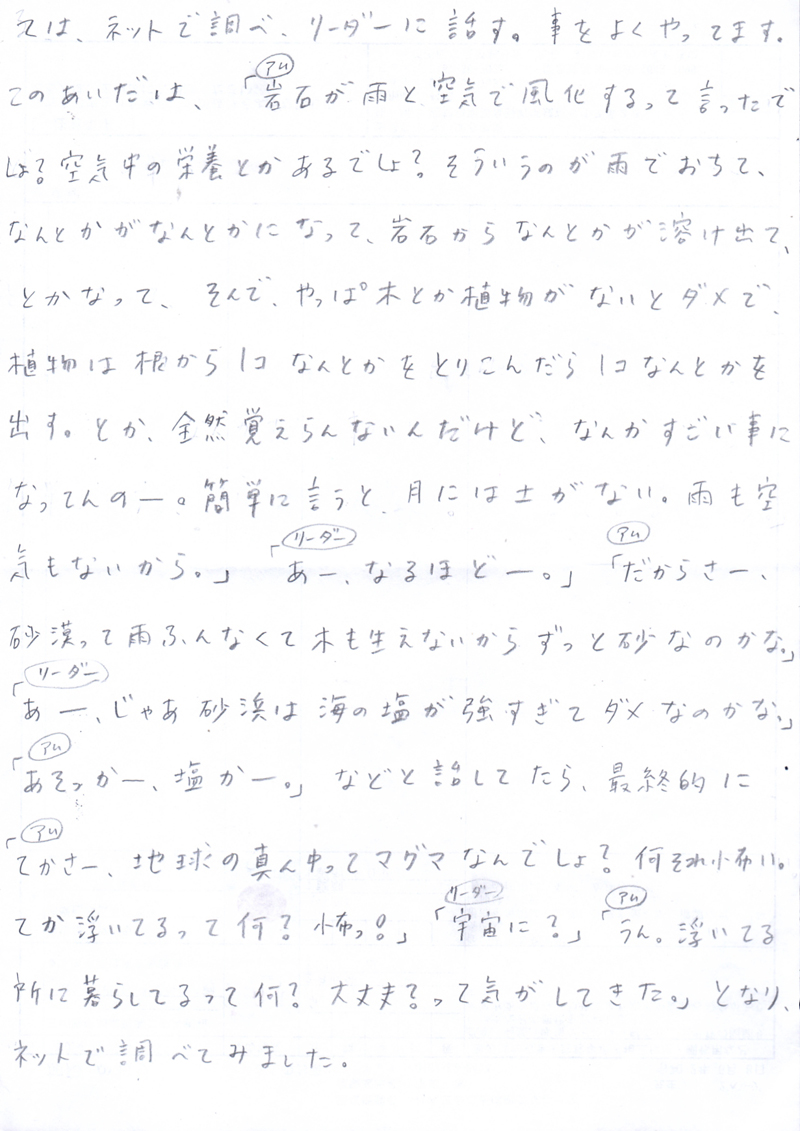 ては、ネットで調べ、リーダーに話す。事をよくやってます。
アム
このあいだは、「岩石が雨と空気で風化するって言ったで
しょ?空気中の栄養とかあるでしょ?そういうのが雨でおちて、
なんとかがなんとかになって、岩石からなんとかが溶け出て、
とかなって、そんで、やっぱ木とか植物がないとダメで、
植物は根から1コなんとかをとりこんだら1コなんとかを
出す。とか、全然覚えらんないんだけど、なんかすごい事に
なってんのー。簡単に言うと、月には土がない。雨も空
リーダー アム
気もないから。」「あー、なるほどー。」「だからさー、
砂漠って雨ふんなくて木も生えないからずっと砂なのかな。」
リーダー
「あー、じゃあ砂浜は海の塩が強すぎてダメなのかな。」
アム
「あそっかー、塩かー。」などと話してたら、最終的に
アム
「てかさー、地球の真ん中ってマグマなんでしょ?何それ怖い。
リーダー アム
てか浮いてるって何?怖っ!」「宇宙に?」「うん。浮いてる
所に暮らしてるって何?大丈夫?って気がしてきた。」となり、
ネットで調べてみました。